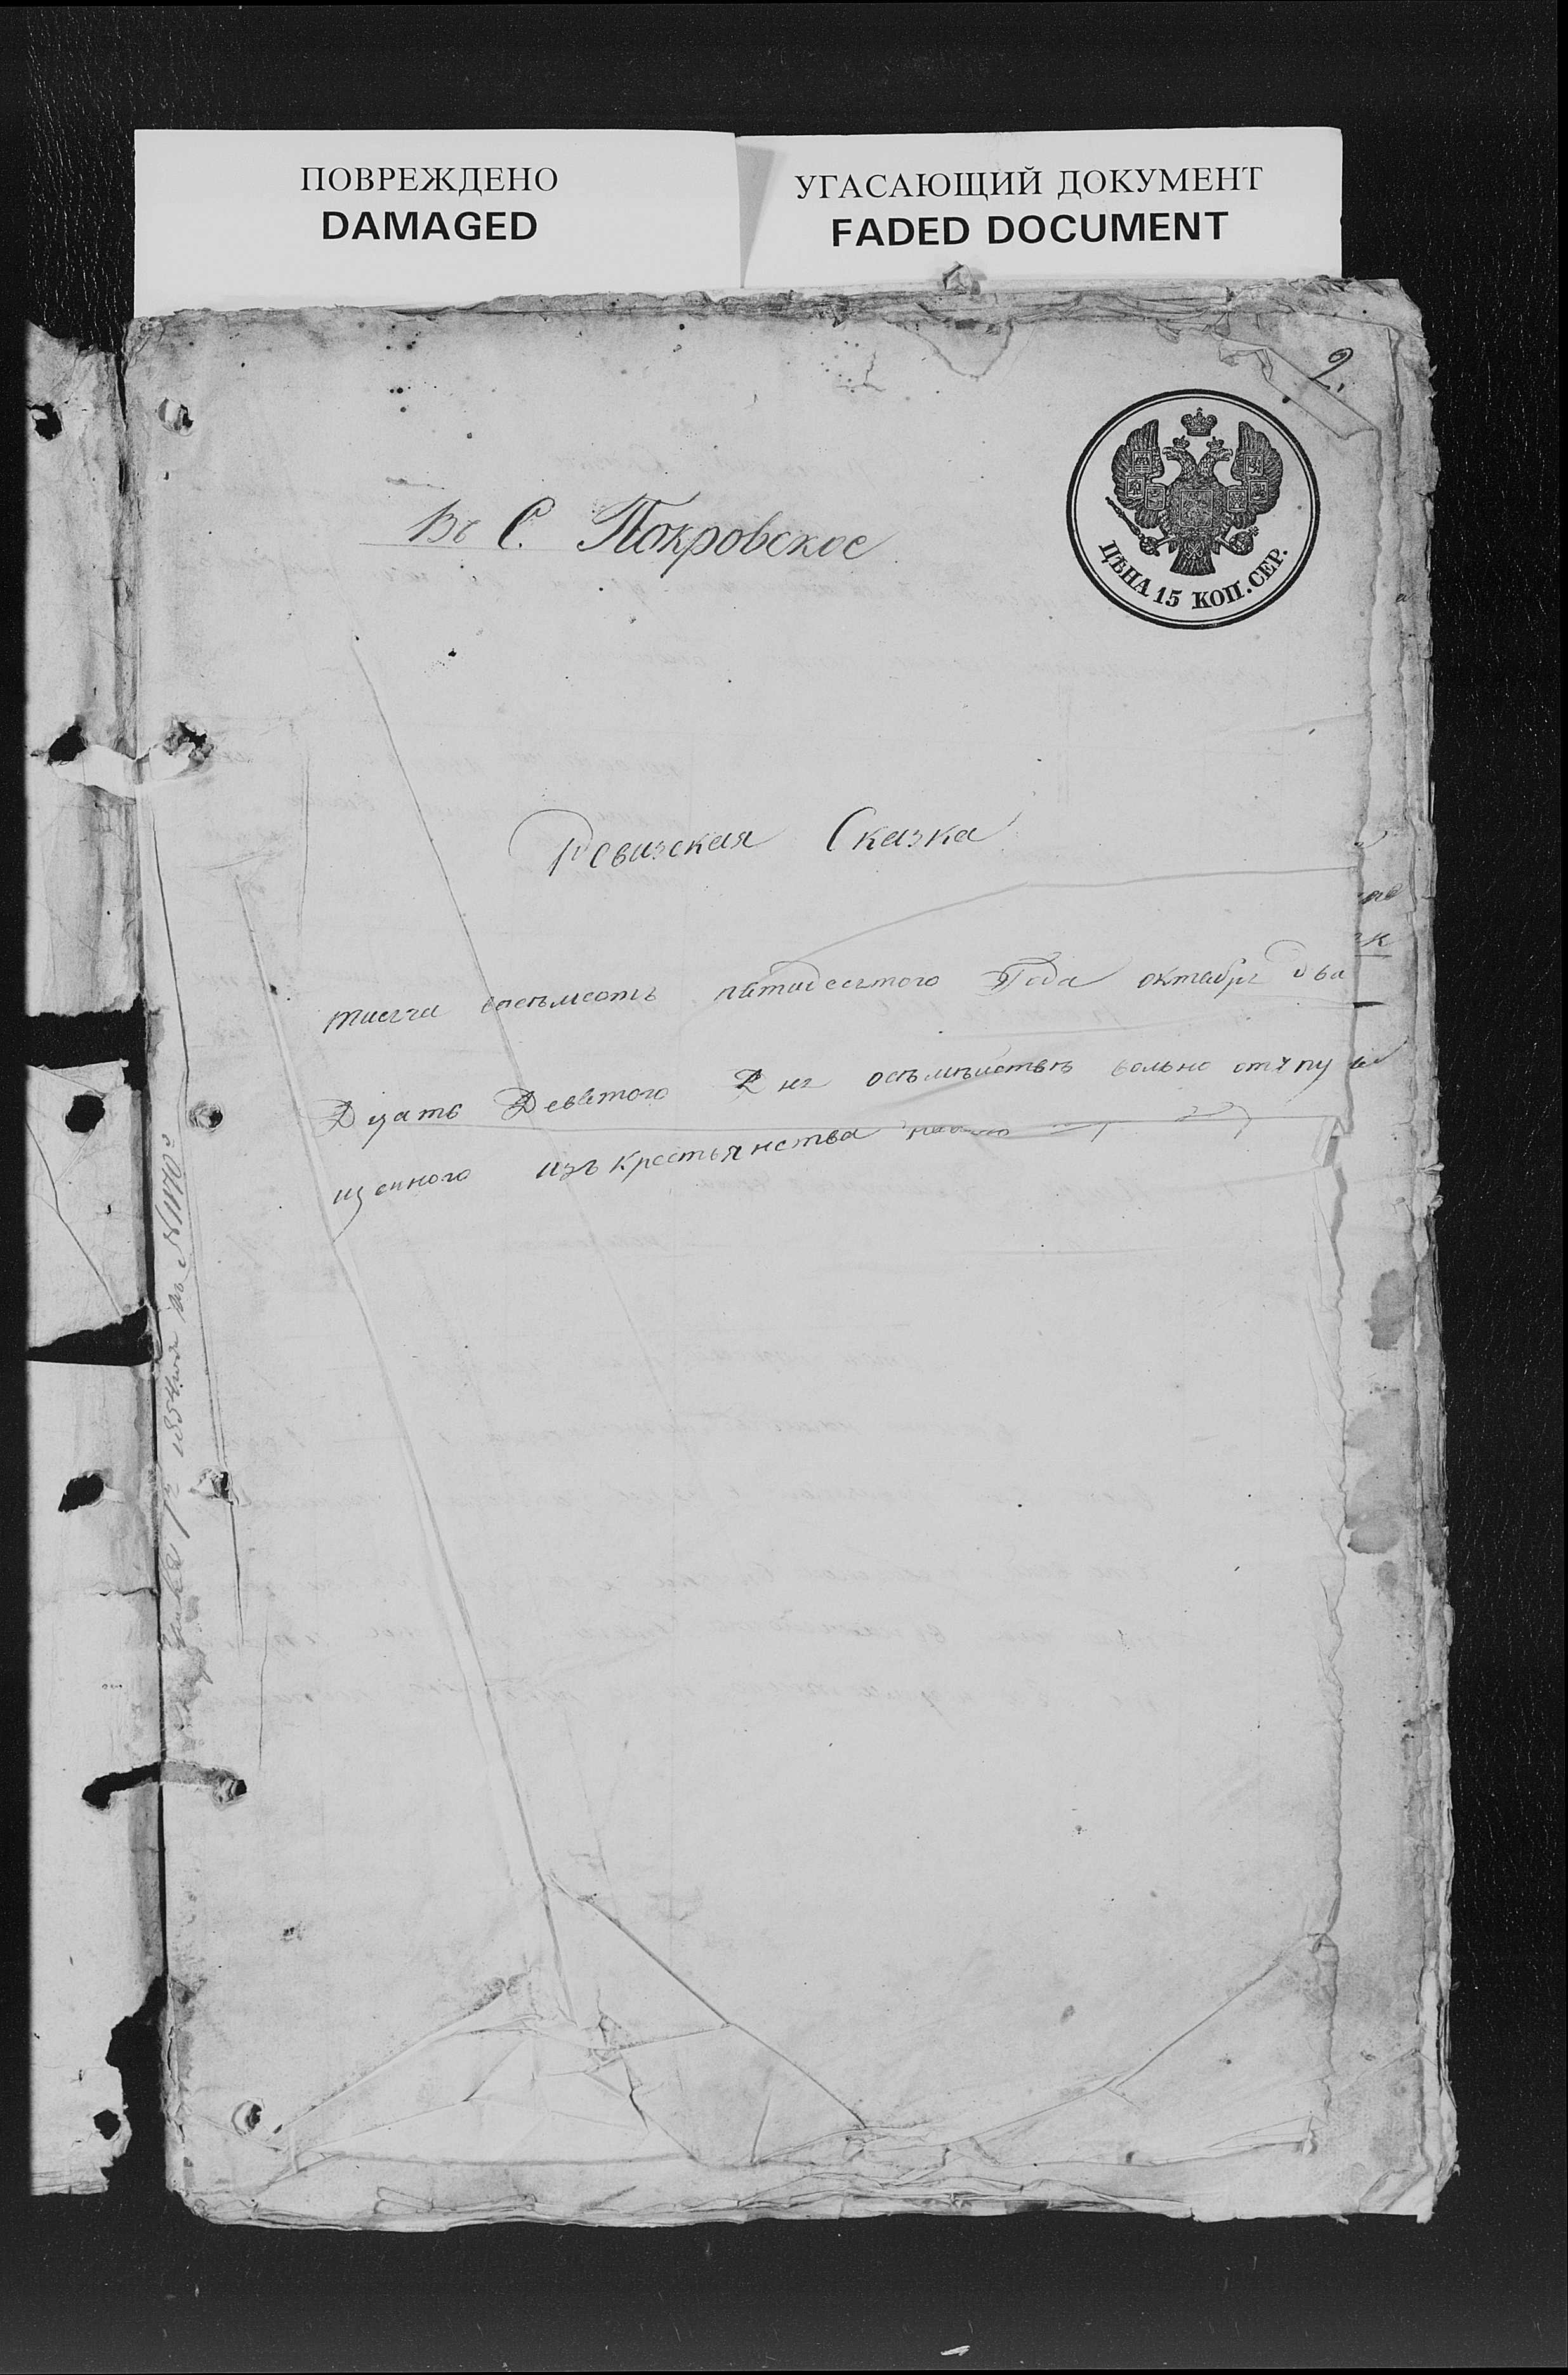 ПОВРЕЖДЕНО
DAMAGED
УГАСАЮЩИЙ ДОКУМЕНТ
FADED DOCUMENT
2.
ЦѢНА 15 КОП. СЕР.
Въ С. Покровское
Ревизская Сказка
тысяча восемьсотъ пятидесятого Года октября два
Дцать Девятого Дня осѣмѣйствѣ вольно отпу
щенного изъ крестьянства